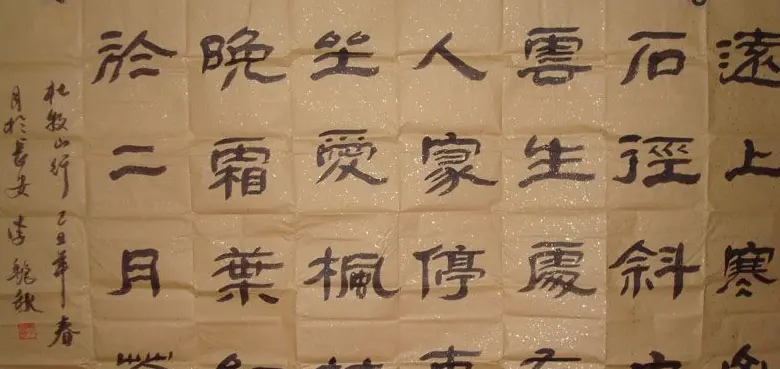 遠上寒
石徑斜
雲生處
人家停
坐愛楓
晚霜葉
於二月
杜牧山行 己丑年春
月於長安 李